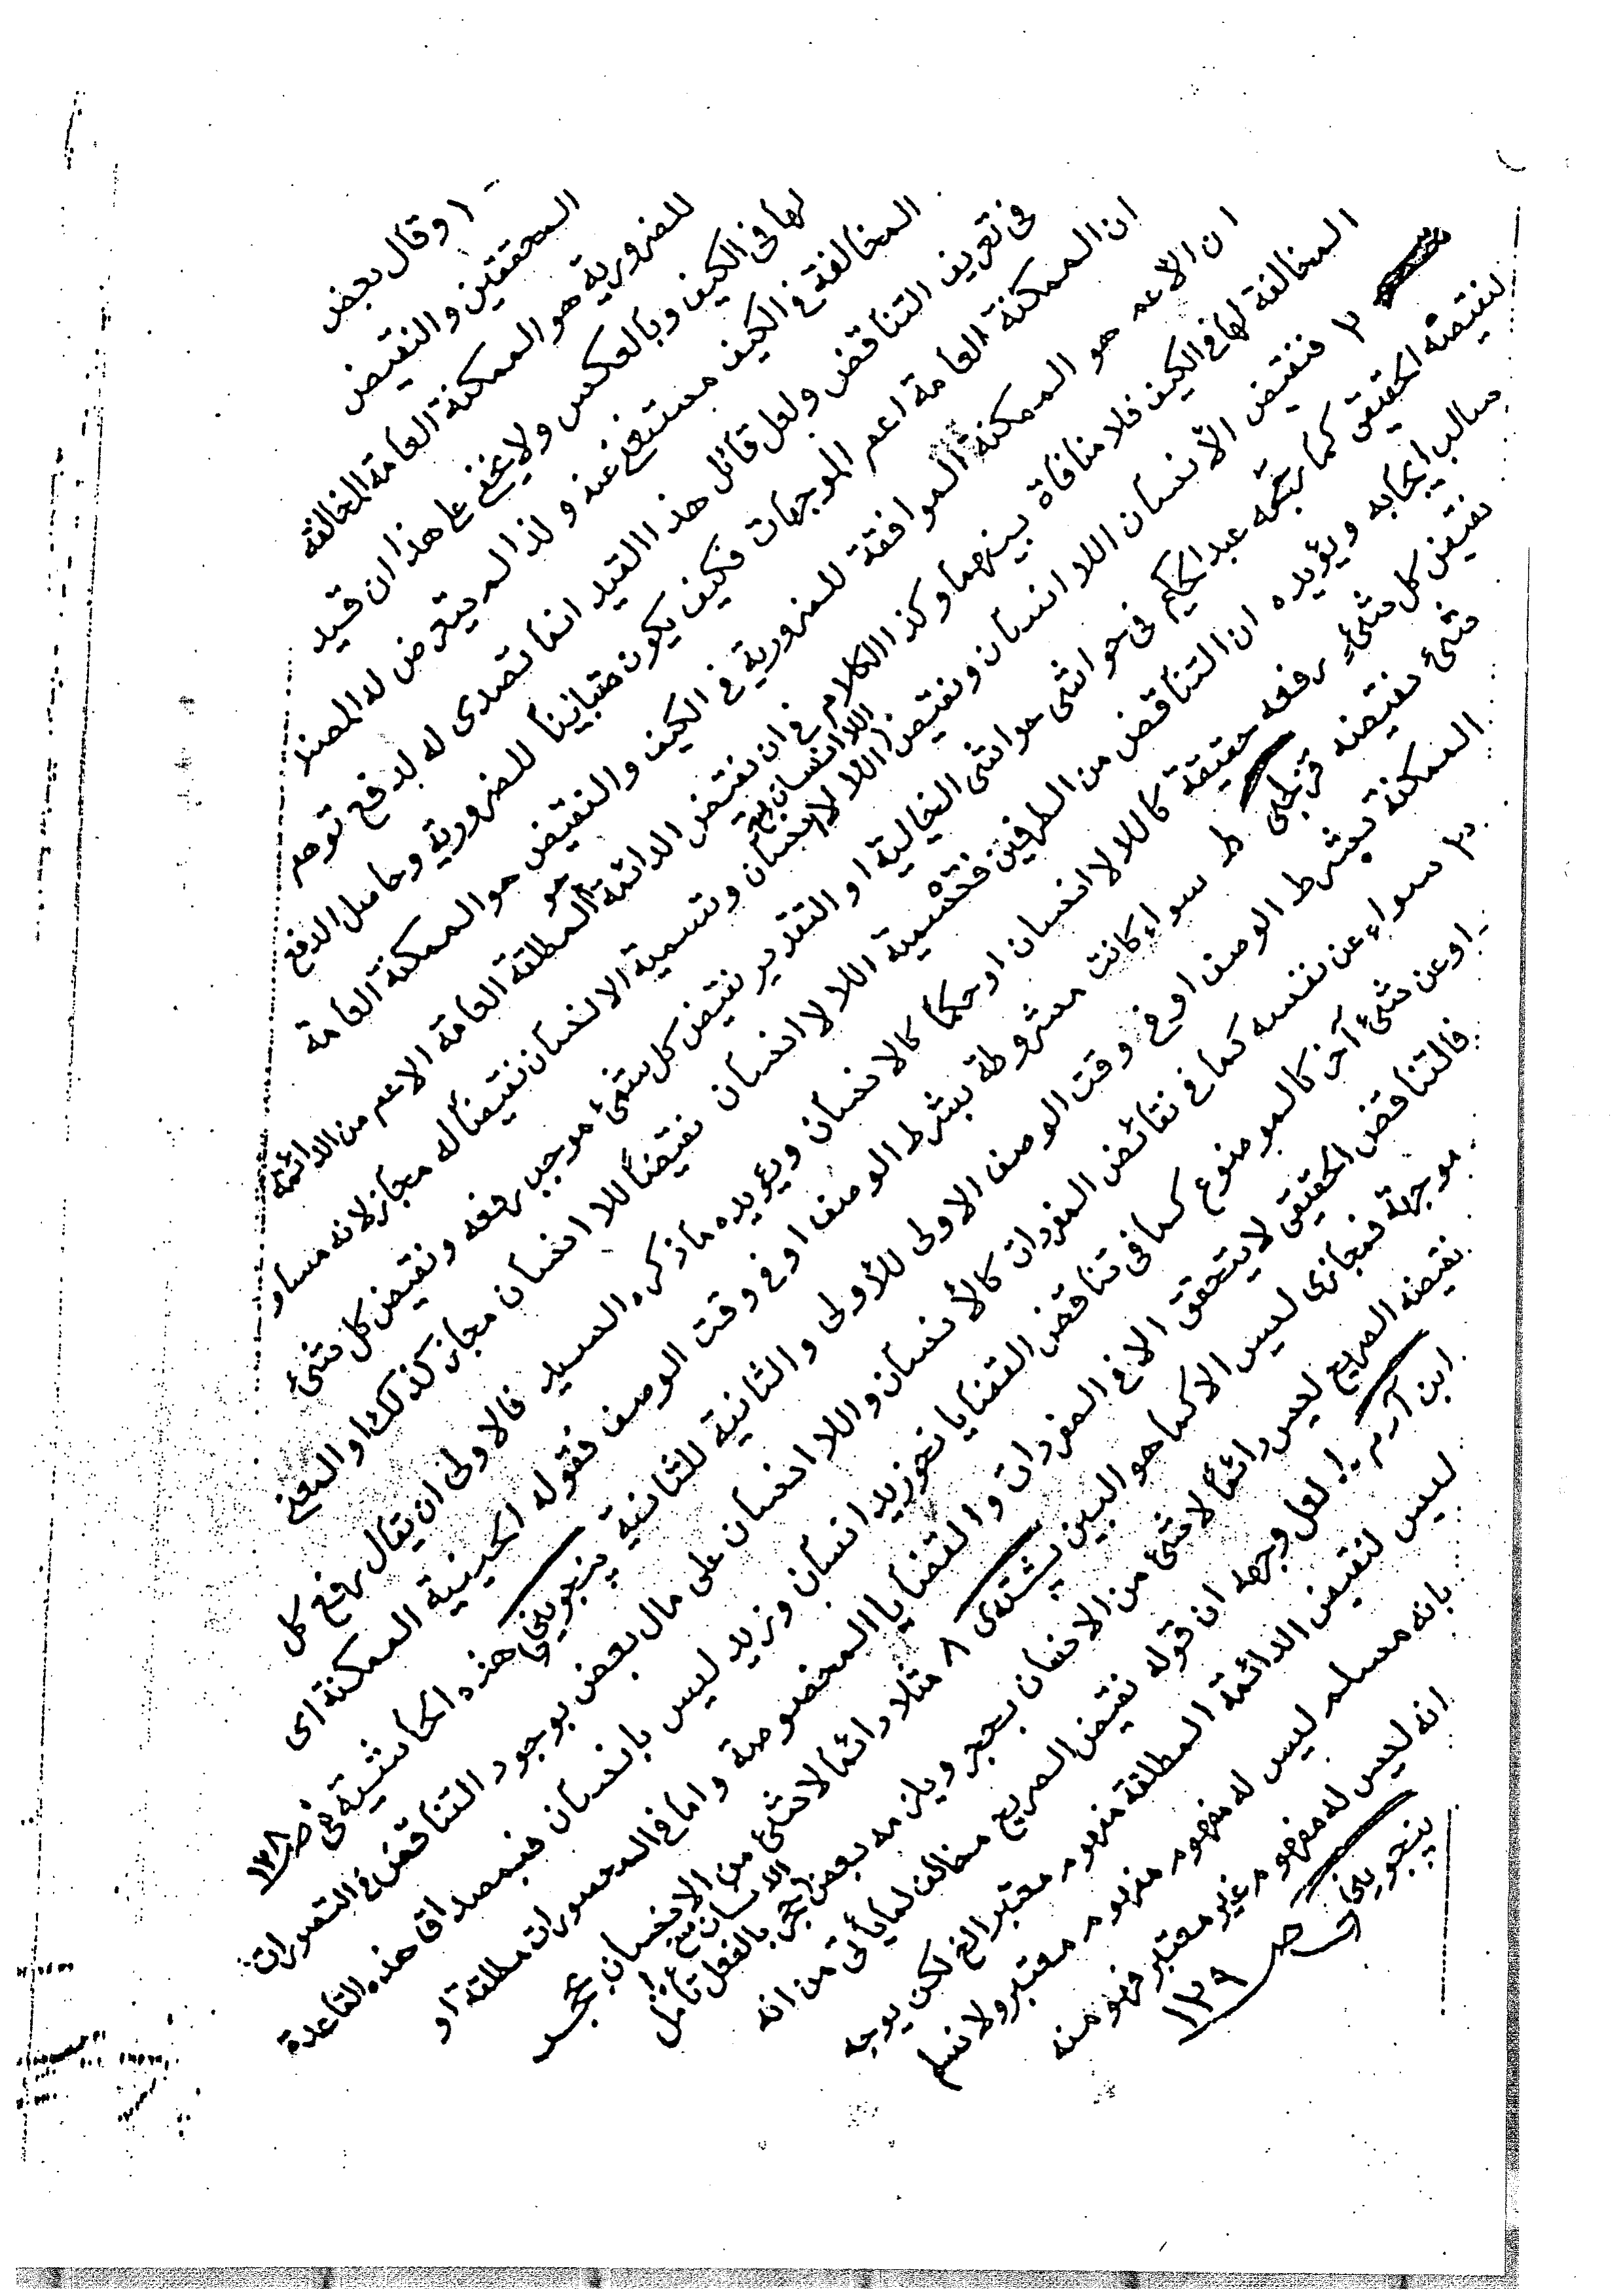 ١ وقال بعض
المحققين والنقيض
للضرورية هو الممكنة العامة المخالفة
لها فى الكيف وبالعكس ولا يخفى على هذا ان قيد
المخالفة فى الكيف مستغنى عنه ولذا لم يتعرض له المصنف
فى تعريف التناقض ولعل قائل هذا القيد انما تصدى له لدفع توهم
ان الممكنة العامة اعم الموجهات فكيف يكون متباينًا للضرورية وحاصل الدفع
ان الاعم هو الممكنة الموافقة للضرورية فى الكيف والنقيض هو الممكنة العامة
المخالفة لها فى الكيف فلا منافاة بينهما وكذا الكلام فى ان نقيض الدائمة هو المطلقة العامة الاعم من الدائمة
٢ فنقيض الأنسان اللاانسان ونقيض اللاانسان اللالاانسان وتسمية الانسان نقيضًا له مجاز لانه مساو
لنقيضه الحقيقى كما بيّنه عبدالحكيم فى حواشى حواشى الخيالية او التقدير نقيض كل شئ موجب رفعه ونقيض كل شئ
سالب ايجابه ويؤيده ان التناقض من الطرفين فتسمية اللالاانسان نقيضًا للاانسان مجاز كذلك او المعنى
نقيض كل شئ رفعه حقيقة كاللالاانسان او حكمًا كالانسان ويؤيده ماذكره السيد فالاولى ان يقال رفع كل
شئ نقيضه قزلجى ط سواء كانت مشروطة بشرط الوصف او فى وقت الوصف فقوله الحينية الممكنة اى
الممكنة بشرط الوصف او فى وقت الوصف الاولى للأولى والثانية للثانية پنجوينى هذه الحاشية فى ص ١٢٨
٢ سواء عن نفسه كما فى نقائض المفردات كالأنسان واللاانسان على مال بعض بوجود التناقض فى التصورات
او عن شئ آخر كالموضوع كما فى تناقض القضايا نحو زيد انسان وزيد ليس بانسان فبمصداق هذه القاعدة
فالتناقض الحقيقى لا يتحقق الا فى المفردات والقضايا المخصوصة واما فى المحصورات مطلقة او
موجهة فمجازى ليس الا كما هو البين ٨ مثلا دائما لاشئ من الانسان بحجر
نقيضه الصريح ليس دائمًا لاشئ من الانسان بحجر ويلزمه بعض الانسان حجر بالفعل تأمل
ابن آدم ! لعل وجهه ان قوله نقيض الصريح مخالف لما يأتى من انه
ليس لنقيض الدائمة المطلقة مفهوم معتبر الخ لكن يوجه
بانه مسلم ليس له مفهوم مفهوم معتبر ولا نسلم
انه ليس له مفهوم غير معتبر فهو منه
پنجوينى ص ١٢٩